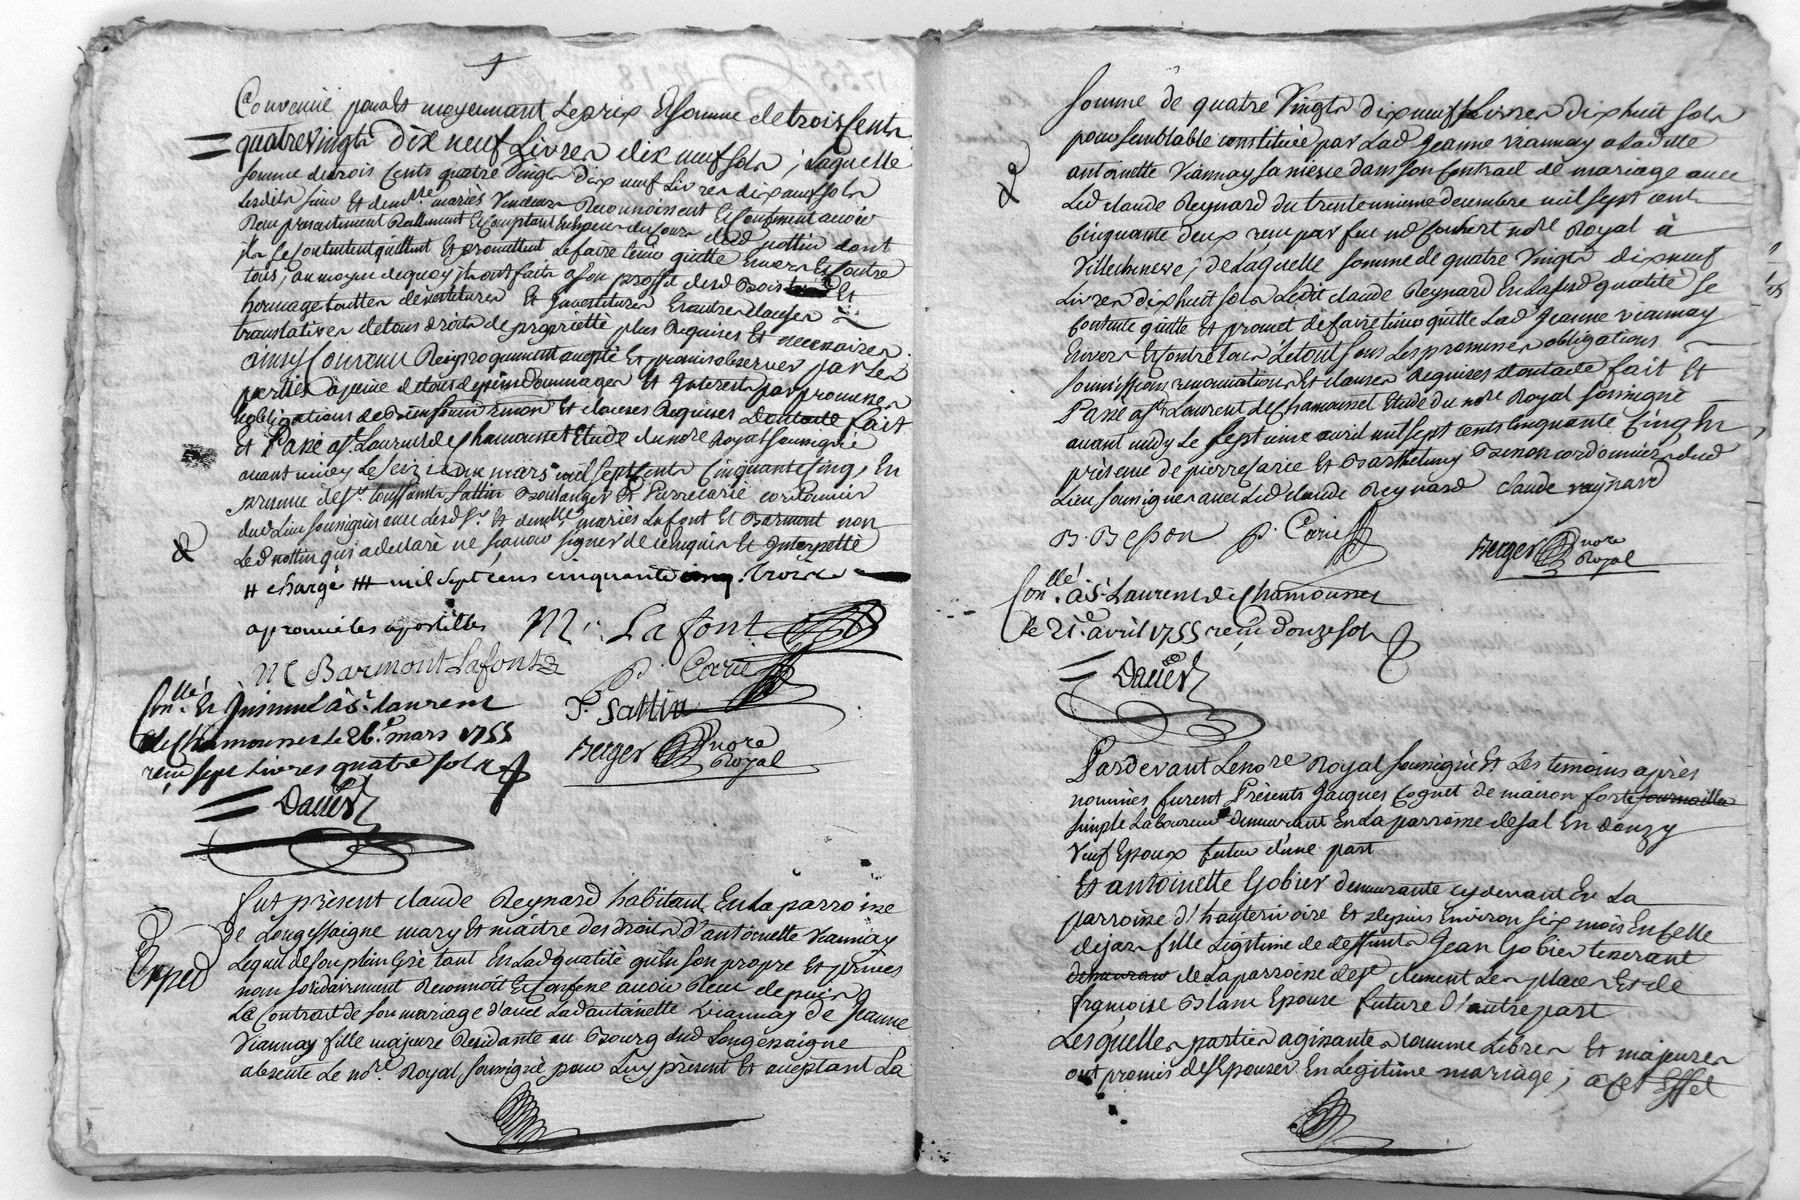 Convenüe pour et moyennant le prix et somme de trois cents
quatre vingts dix neuf livres dix neuf sols ; laquelle
somme de trois cents quatre vingts dix neuf livres dix neuf sols
lesdits sieur et demlle mariés vendeurs Reconnoissent et confessent avoir
Reçu presentement Reellement et comptant dud nottin dont
ils se contentent quittent et promettent le faire tenir quitte envers et contre
tous ; au moyen de quoy ils ont faits a son proffit desd bois et
hommage touttes dévestitures et Investitures et autres clauses
translatives de tous droits de proprietté plus Requises et necessaires
ainsy convenu Reciproquement accepté et promis observer par les
parties a peine de tous depens dommages et Interests par promesses
obligations et clauses Requises dont acte fait
Et Passé a St Laurent de Chamousset Etude du nore Royal soussigné
avant midy le seizieme mars mil sept cents cinquante cinq, en
presence de Sr toussaints Sattin Boulanger et Pierre Carié cordonnier
dud Lieu soussignés avec lesd Sr et demlle mariés Lafont et Barmont non
Led nottin qui a declaré ne sçavoir signer de ce enquis et Interpellé
# chargé ## mil sept cens cinquante cinq. trois
aprouvé les apostilles M. Lafont
M C Barmont Lafont
p. Carié
Conllé. Et Insinué à St. laurent
T. Sattin
de Chamousset le 26e. mars 1755
Berger nore Royal
reçu sept livres quatre sols
Daüer
Fut présent claude Reynard habitant en la parroisse
de Longessaigne mary et maitre des droits d'antoinette Viannay
Exped
Lequel de son plein gré tant en lad qualité qu'en son propre et privé
nom solidairement Reconnoit et Confesse avoir Reçu depuis
Le Contrat de son mariage d'avec Lad antoinette Viannay de Jeanne
Viannay fille majeure Residante au Bourg dud Longessaigne
absente Le nore. Royal soussigné pour Luy présent et acceptant La
somme de quatre vingts dix neuf Livres dix huit sols
pour semblable constituée par Lad Jeanne viannay a Laditte
antoinette Viannay sa niesce dans son Contract de mariage avec
Led claude Reynard du trente unieme decembre mil sept cents
cinquante deux reçu par feu me Royal à
Villechenève ; de Laquelle somme de quatre vingts dix neuf
Livres dix huit sols Ledit claude Reynard en lasusd qualité se
contente quitte et promet de faire tenir quitte Lad Jeanne viannay
Envers et contre tous Le tout sous Les promesses obligations
soumissions renonciations et clauses Requises dont acte fait et
Passé a St Laurent de Chamousset Etude du nore Royal soussigné
avant midy Le septieme avril mil sept cents cinquante Cinq En
présence de pierre Carié et Barthelemy Besson cordonniers dud
Lieu soussignés avec Led claude Reynard claude raynard
B. Besson p. Carié
Berger nore Royal
Conllé. à St. Laurent de Chamousset
le 21e. avril 1755 reçu douze sols
Daüer
Pardevant Le nore Royal soussigné et Les temoins après
nommés furent Présents Jacques Coquet de maison forte
simple Laboureur demeurant en La parroisse de sal en donzy
veuf Epoux futur d'une part
Et antoinette Gobier demeurante cy devant en La
parroisse d'hauterivoire et depuis environ six mois en celle
de Jas fille Légitime de deffunts Jean Gobier tisserant
de La parroisse de St clement Les places et de
françoise Epouse future d'autre part
Lesquelles parties agissantes comme Libres et majeures
ont promis de s'Epouser en Legitime mariage ; a cet Effet